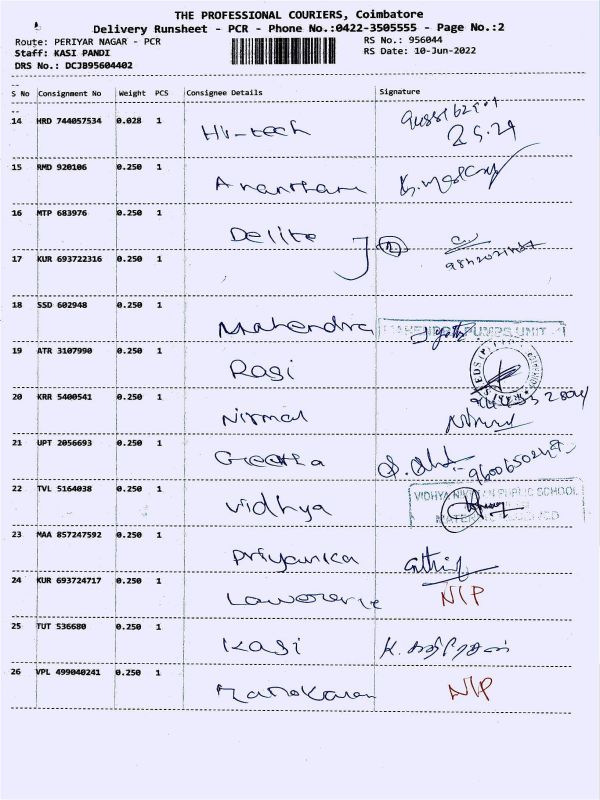 THE PROFESSIONAL COURIERS, Coimbatore
Delivery Runsheet - PCR - Phone No.:0422-3505555 - Page No.:2
Route: PERIYAR NAGAR - PCR
RS No.: 956044
Staff: KASI PANDI
RS Date: 10-Jun-2022
DRS No.: DCJB95604402
S No Consignment No Weight PCS Consignee Details Signature
14 HRD 744057534 0.028 1 Hi-tech
15 RMD 920106 0.250 1
16 MTP 683976 0.250 1 Delite
17 KUR 693722316 0.250 1
18 SSD 602948 0.250 1 Mahendra PUMPS UNIT
19 ATR 3107990 0.250 1 Rasi
20 KRR 5400541 0.250 1 Nirmal
21 UPT 2056693 0.250 1 Geetha
22 TVL 5164038 0.250 1 Vidhya VIDHYA NIKETAN PUBLIC SCHOOL
23 MAA 857247592 0.250 1 Priyanka
24 KUR 693724717 0.250 1 N/P
25 TUT 536680 0.250 1 Kasi K. கதிரேசன்
26 VPL 499040241 0.250 1 N/P